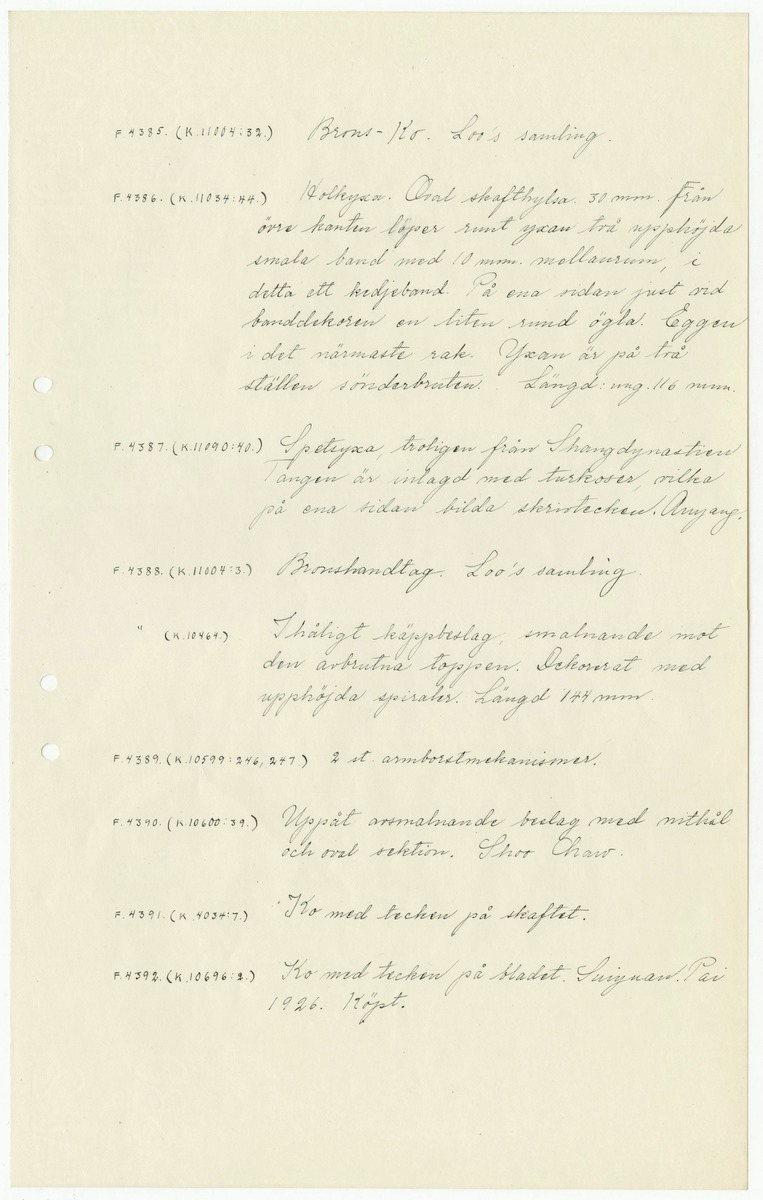 F.4385. (K.11004:32.) Brons-Ko. Loo's samling.
F.4386. (K.11034:44.) Holkyxa. Oval skafthylsa. 30 mm. Från
övre kanten löper runt yxan två upphöjda
smala band med 10 mm. mellanrum, i
detta ett kedjeband. På ena sidan just vid
banddekoren en liten rund ögla. Eggen
i det närmaste rak. Yxan är på två
ställen sönderbruten. Längd: ung. 116 mm.
F.4387. (K.11090:40.) Spetsyxa, troligen från Shangdynastien
Tangen är inlagd med turkoser, vilka
på ena sidan bilda skrivtecken. Anyang.
F.4388. (K.11004:3.) Bronshandtag. Loo's samling.
" (K.10464.) Ihåligt käppbeslag, smalnande mot
den avbrutna toppen. Dekorerat med
upphöjda spiraler. Längd 144 mm.
F.4389. (K.10599:246, 247.) 2 st. armborstmekanismer.
F.4390. (K.10600:39.) Uppåt avsmalnande beslag med nithål
och oval sektion. Shoo Chow.
F.4391. (K.4034:7.) Ko med tecken på skaftet.
F.4392. (K.10696:2.) Ko med tecken på bladet. Suiyuan. Pai
1926. Köpt.